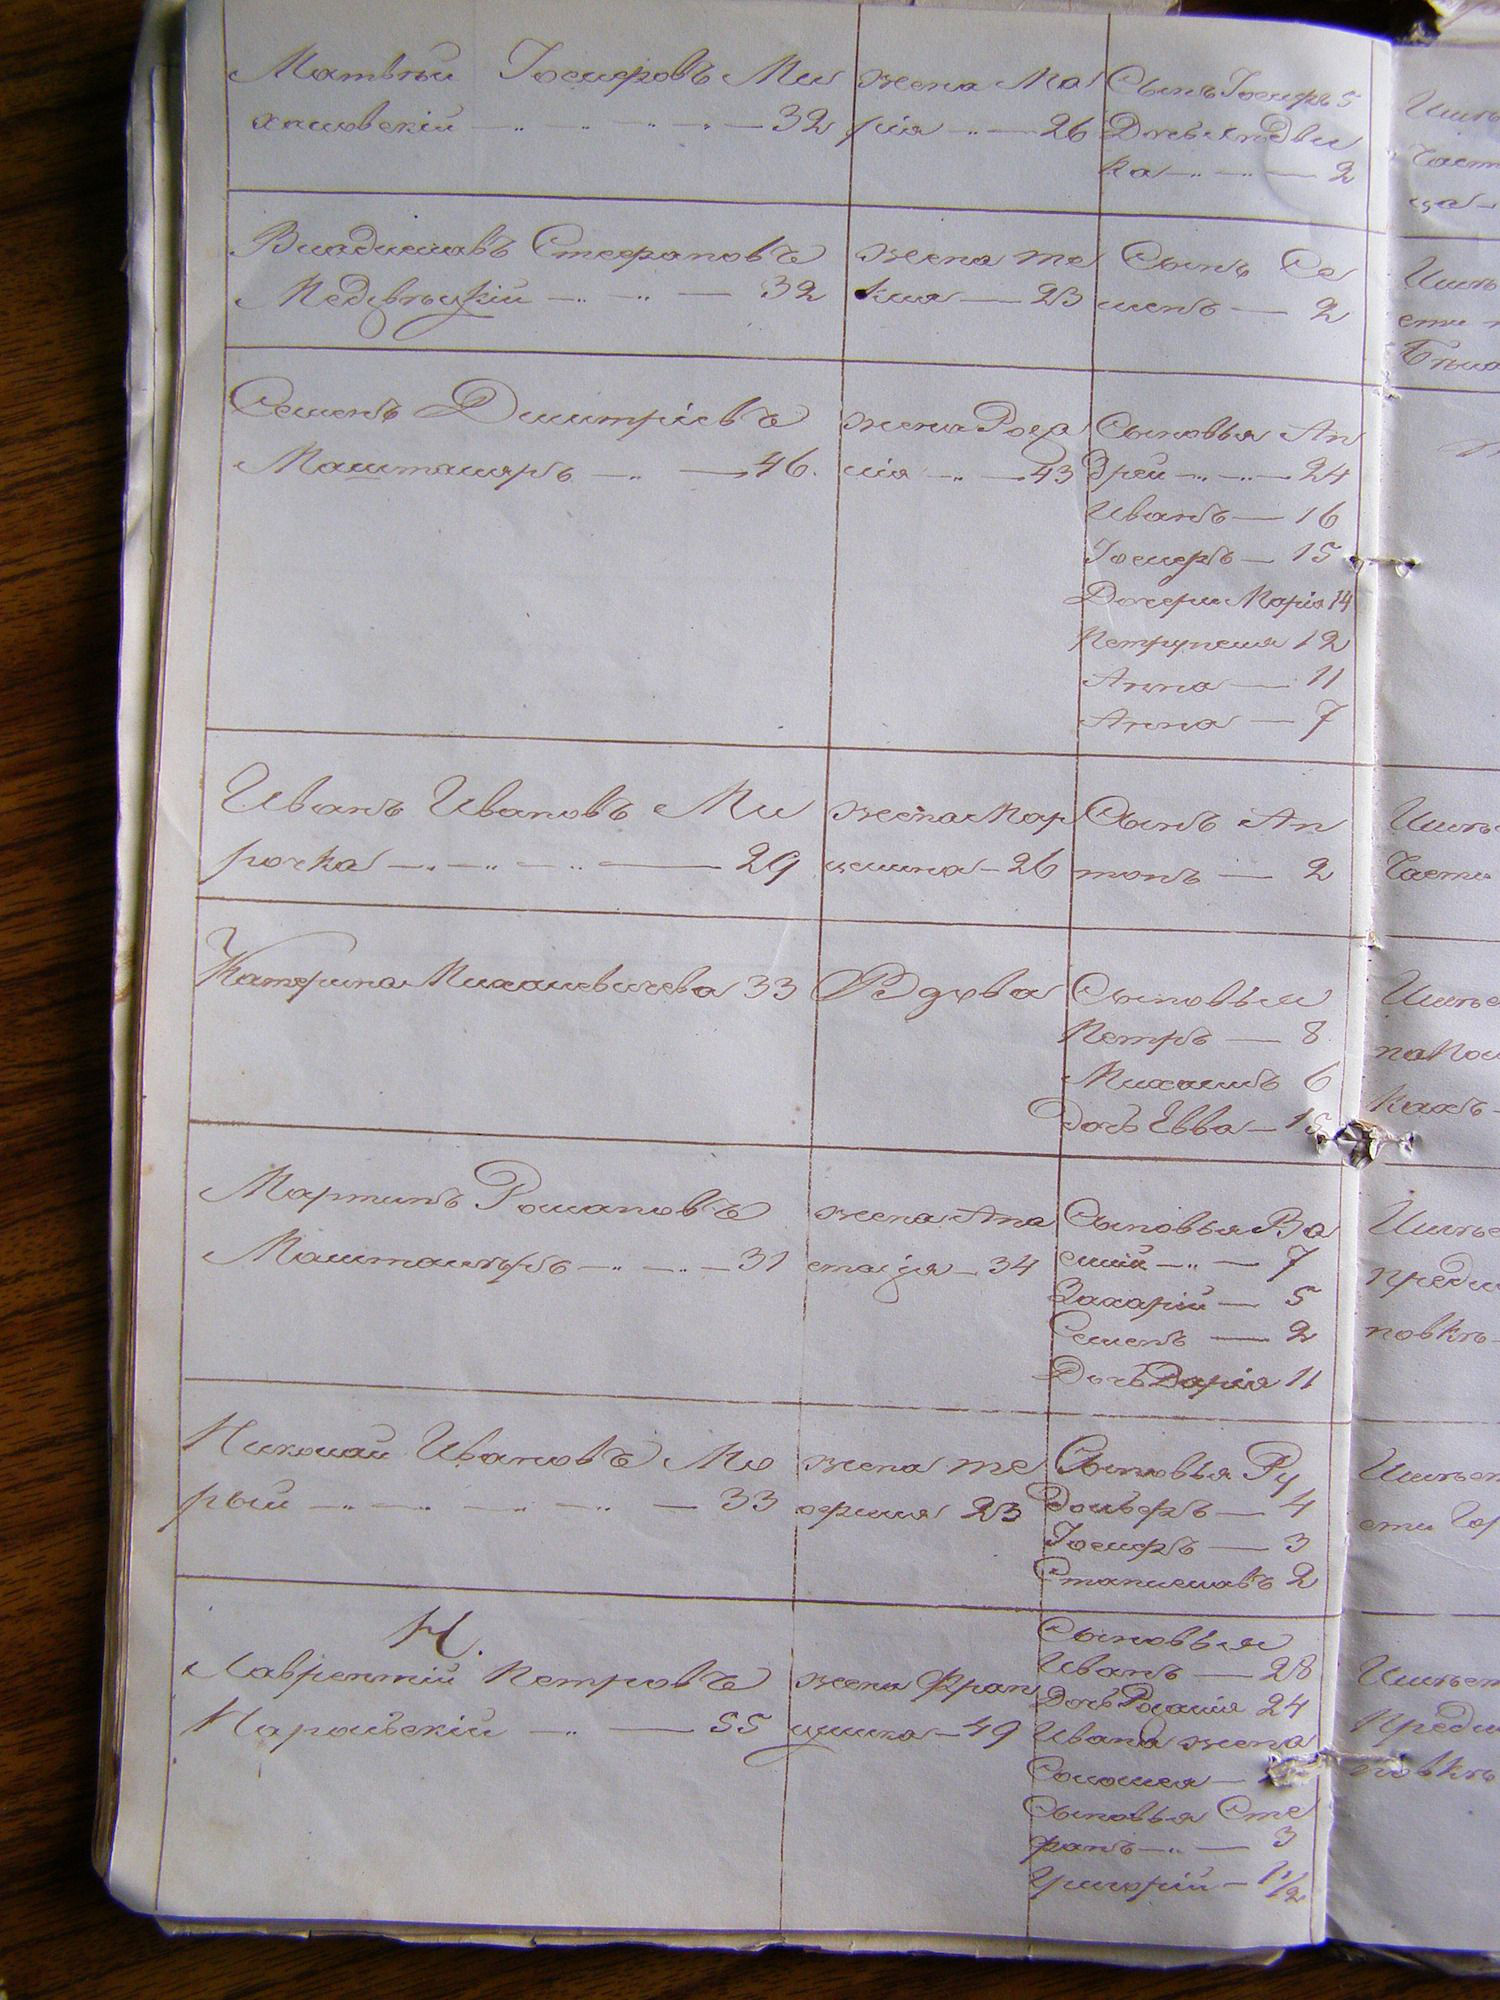 Матвѣй Іосифовъ Ми
халовскій — 32
жена Ма
рія — 26
Сынъ Іосифъ 5
Дочь Ядви
га — 2
Владиславъ Стефановъ
Медвѣцкій — 32
жена Те
кля — 23
Сынъ Се
менъ — 2
Семенъ Дмитріевъ
Машталяръ — 46
жена Роза
лія — 43
Сыновья Ан
дрей — 24
Иванъ — 16
Іосифъ — 15
Дочери Марія 14
Петрунеля 12
Анна — 11
Анна — 7
Иванъ Ивановъ Ми
рочка — 29
жена Мар
целина — 26
Сынъ Ан
тонъ — 2
Катерина Михалевичева 33
Вдова
Сыновья
Петръ — 8
Михаилъ 6
Дочь Евва — 15
Мартинъ Романовъ
Машталѣръ — 31
жена Ана
стазія — 34
Сыновья Ва
силій — 7
Захарій — 5
Семенъ — 2
Дочь Дарія 11
Николай Ивановъ Мо
рый — 33
жена Те
офиля 23
Сыновья Ру
дольфъ — 4
Іосифъ — 3
Станиславъ 2
Н.
Лаврентій Петровъ
Нароівскій — 55
жена Фран
цишка — 49
Сыновья
Иванъ — 28
Дочь Розалія 24
Ивана жена
Соломея —
Сыновья Сте
фанъ — 3
Григорій — 1 1/2